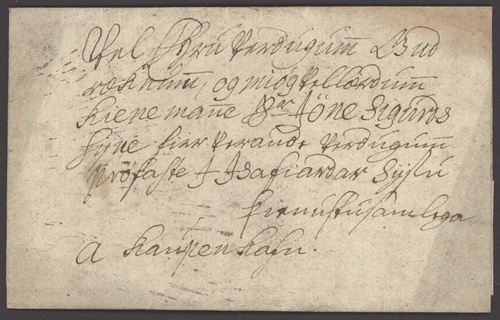 Vel Ehru Verdugum Gud
ræknum, og miog vellærdum
kiene manne Sr Jöne Sigurds
syne fier verande verdugum
profaste J Isafiardar Syslu
þienustusamlega
a kaupenhafn.